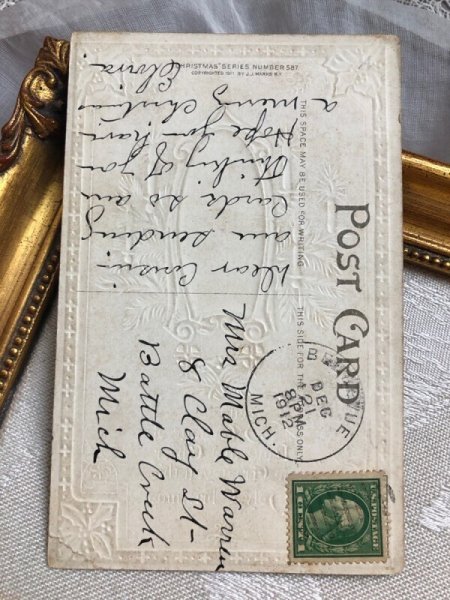 "CHRISTMAS" SERIES NUMBER 587
COPYRIGHTED 1911 BY J.J. MARKS N.Y.
POST CARD
THIS SPACE MAY BE USED FOR WRITING
THIS SIDE FOR THE ADDRESS ONLY.
Dear Cousin:
am sending
Cards so am
thinking of you
Hope you have
a merry Christmas
DEC
21
8P
1912
MICH.
U.S. POSTAGE
1 CENT 1
Mrs Mable Warren
8 Clay St-
Battle Creek
Mich